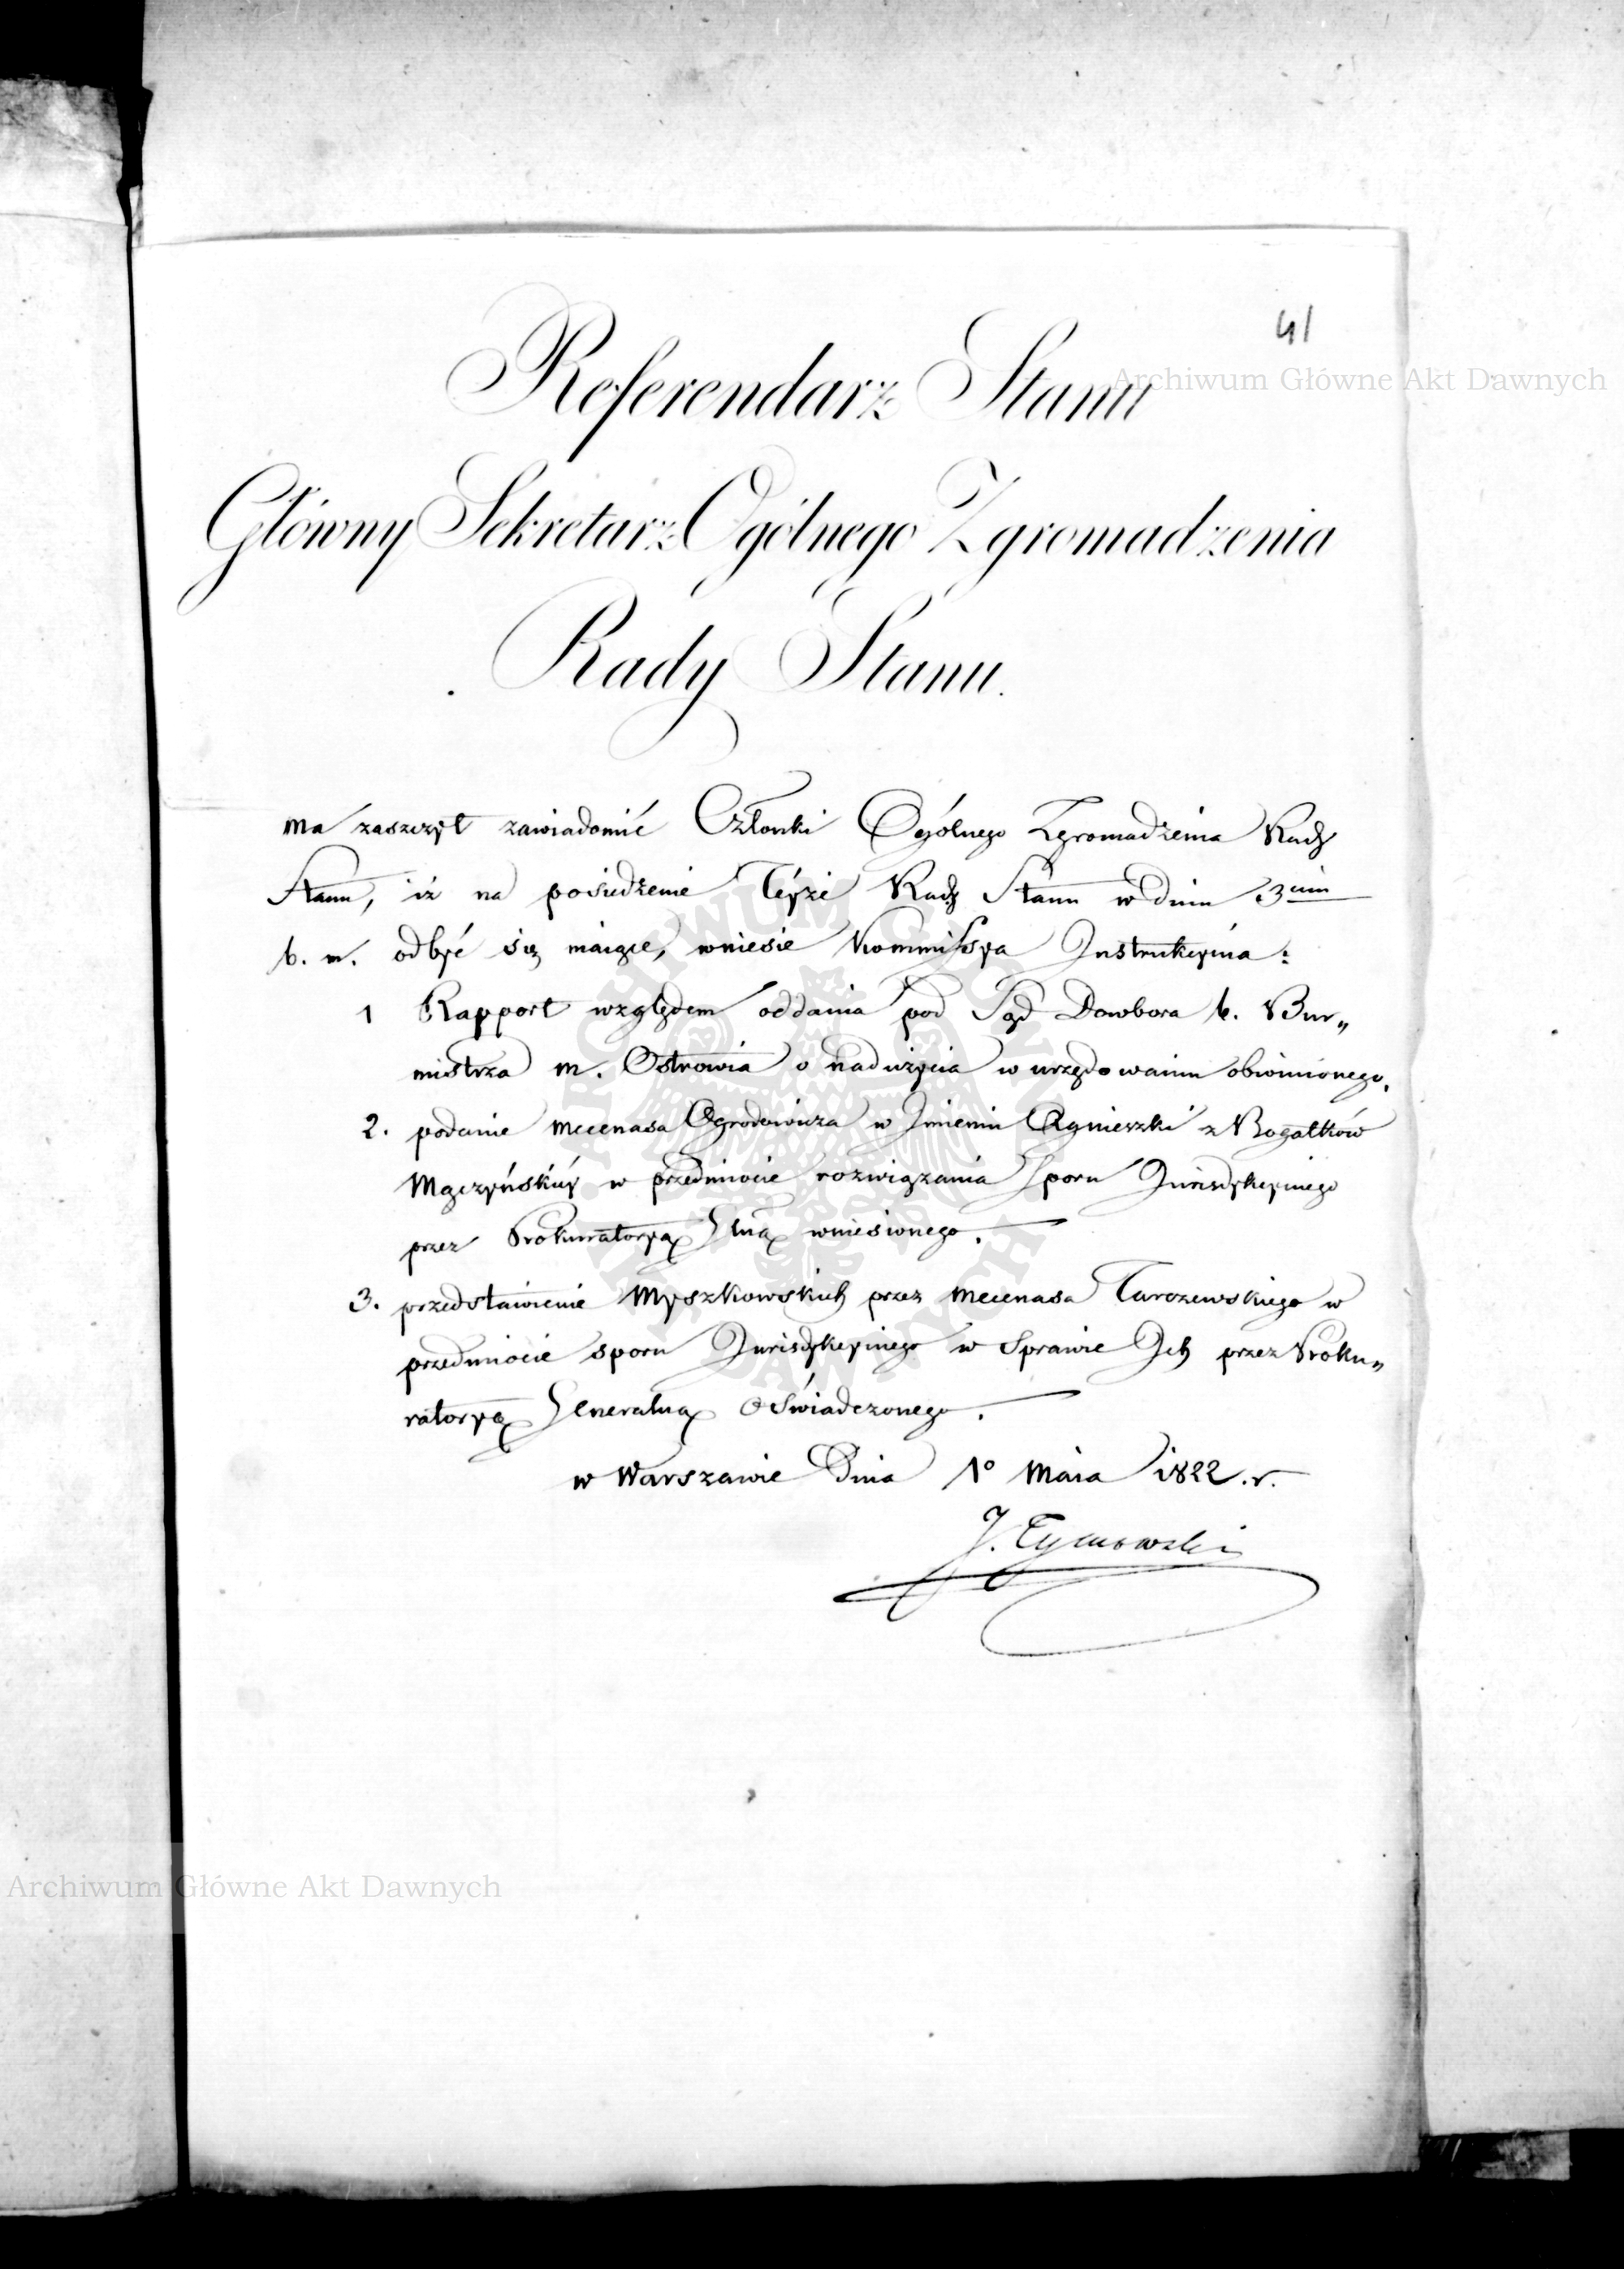 41
Referendarz Stanu
Archiwum Główne Akt Dawnych
Główny Sekretarz Ogólnego Zgromadzenia
Rady Stanu.
ma zaszczyt zawiadomić Członki Ogólnego Zgromadzenia Rady
Stanu, iż na posiedzenie Téyże Rady Stanu w dniu 3cim
b. m. odbyć się maiące, wniesie Kommissya Instrukcyina:
1 Rapport względem oddania pod Sąd Dowbora b. Bur„
mistrza m. Ostrowia o nadużycia w urzędowaniu obwinionego.
2. podanie Mecenasa Ogrodowicza w Jmieniu Agnieszki z Bogatków
Mączyńskiéy w przedmiocie rozwiązania Sporu Jurisdykcyinego
przez Prokuratoryą Glną wniesionego.
3. przedstawienie Myszkowskich przez Mecenasa Tarczewskiego w
przedmiocie sporu Jurisdykcyinego w Sprawie Jch przez Proku„
ratoryą Generalną Oświadczonego.
w Warszawie Dnia 1o Maia 1822.r.
J. Tymowski
Archiwum Główne Akt Dawnych
ARCHIWUM GŁÓWNE AKT DAWNYCH